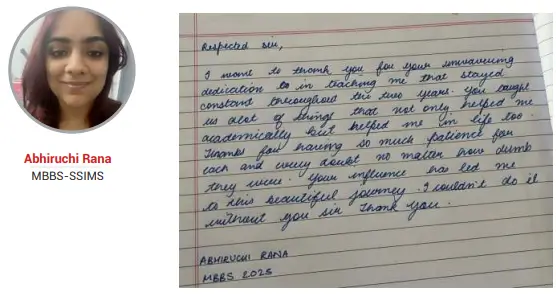 Abhiruchi Rana
MBBS-SSIMS
Respected sir,
I want to thank you for your unwavering
dedication to in teaching me that stayed
constant throughout the two years. You taught
us alot of things that not only helped me
academically but helped me in life too.
Thanks for having so much patience for
each and every doubt no matter how dumb
they were. Your influence has led me
to this beautiful journey. I couldn't do it
without you sir Thank you.
ABHIRUCHI RANA
MBBS 2025